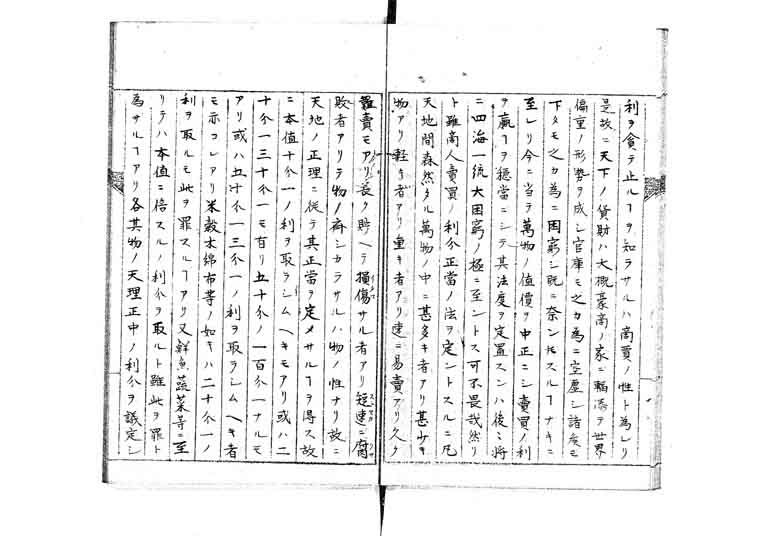 利ヲ貪テ止ルヿヲ知ラサルハ商買ノ性ト為レリ
是故ニ天下ノ貨財ハ大概豪商ノ家ニ輻湊テ世界
偏重ノ形勢ヲ成シ官庫モ之カ為ニ空虚シ諸矦モ
下タモ之カ為ニ困窮シ既ニ奈ントモスルヿナキニ
至レリ今ニ当テ萬物ノ値價ヲ中正ニシ賣買ノ利
ヲ贏ヿヲ穏當ニシテ其法度ヲ定置スンハ後ニ將
ニ四海一統大困窮ノ極ニ至ントス可不畏哉然リ
ト雖商人賣買ノ利分正當ノ法ヲ定ントスルニ凡
天地間森然タル萬物ノ中ニ甚多キ者アリ甚少キ
物アリ軽キ者アリ重キ者アリ速ニ易賣アリ久ク
難賣モアリ長ク貯ヘテ損傷サル者アリ短速ニ腐
敗者アリテ物ノ齊シカラサルハ物ノ性ナリ故ニ
天地ノ正理ニ従テ其正當ヲ定メサルヿヲ得ス故
ニ本値十分一ノ利ヲ取ラシムヘキモアリ或ハ二
十分一三十分一モ有リ五十分ノ一百分一ナルモ
アリ或ハ五分一三分一ノ利ヲ取ラシムヘキ者
モ亦コレアリ米穀木綿布等ノ如キハ二十分一ノ
利ヲ取ルモ此ヲ罪スルヿアリ又鮮魚蔬菜等ニ至
リテハ本値ニ倍スルノ利分ヲ取ルト雖此ヲ罪ト
為サルヿアリ各其物ノ天理正中ノ利分ヲ議定シ